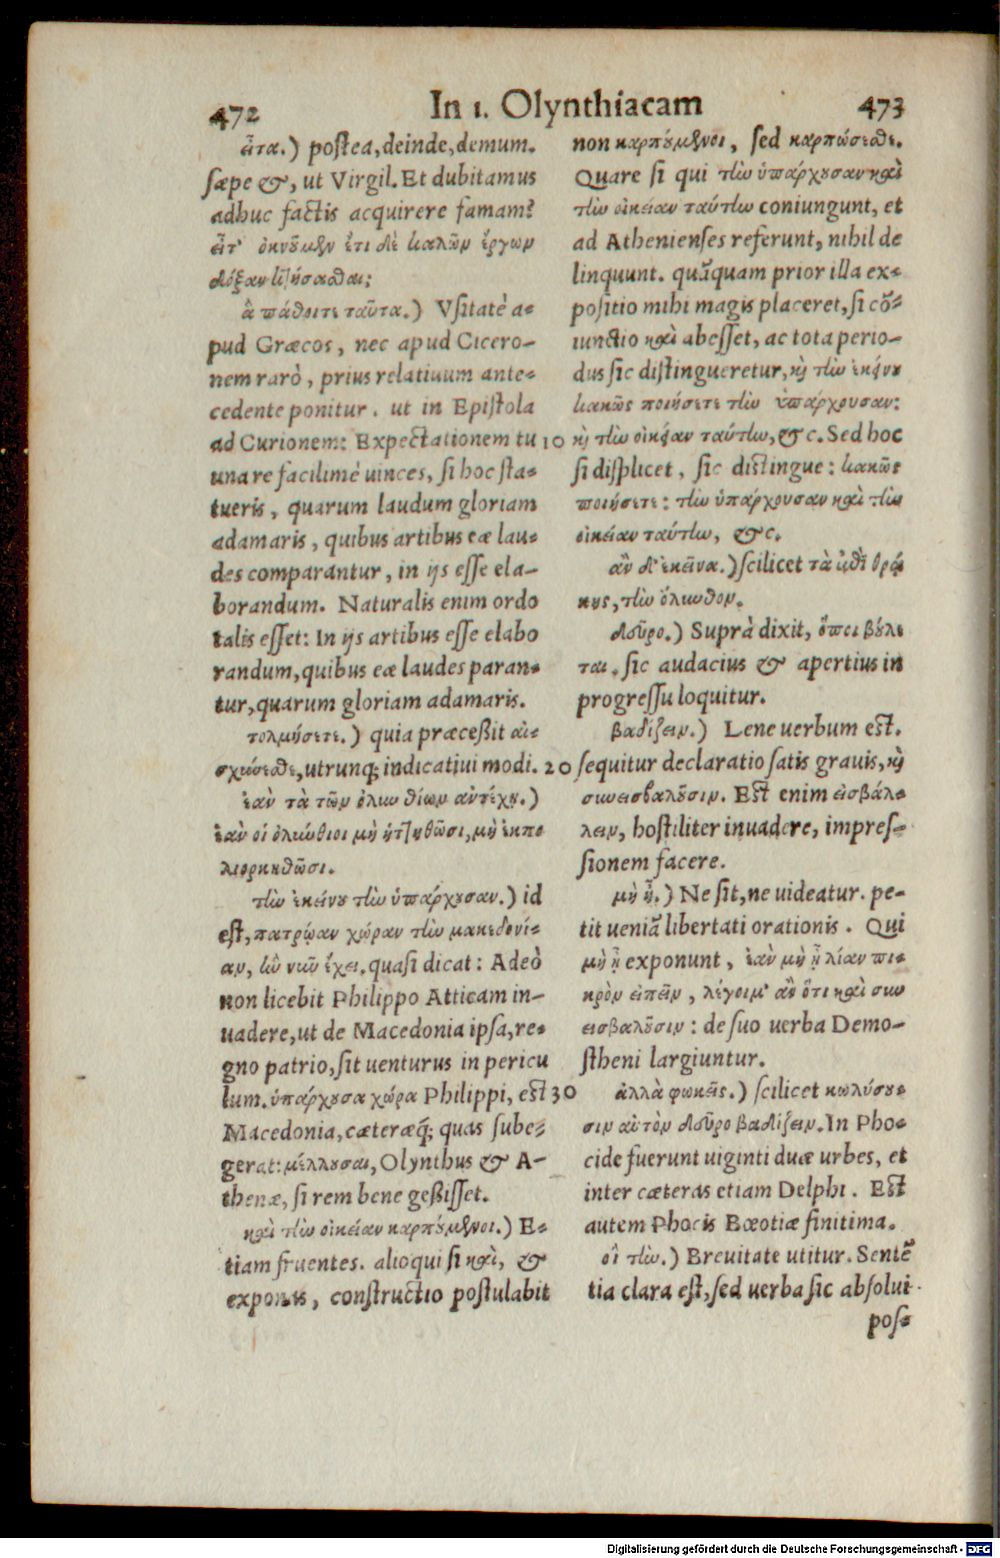 472
In 1. Olynthiacam
473
εἶτα.) postea, deinde, demum.
sæpe &, ut Virgil. Et dubitamus
adhuc factis acquirere famam?
εἶτ' ὀκνοῦμεν ἔτι δὲ καλῶν ἔργων
δόξαν κτήσασθαι;
ἃ πάθοιτε ταῦτα.) Vsitatè a-
pud Græcos, nec apud Cicero-
nem rarò, prius relatiuum ante-
cedente ponitur. ut in Epistola
ad Curionem: Expectationem tu
una re facilimè uinces, si hoc sta-
tueris, quarum laudum gloriam
adamaris, quibus artibus eæ lau-
des comparantur, in ijs esse ela-
borandum. Naturalis enim ordo
talis esset: In ijs artibus esse elabo
randum, quibus eæ laudes paran-
tur, quarum gloriam adamaris.
τολμήσετε.) quia præceßit αἰ-
σχυνεῖσθε, utrunq; indicatiui modi.
ἐὰν τὰ τῶν ὀλυνθίων ἀντέχῃ.)
ἐὰν οἱ ὀλύνθιοι μὴ ἡττηθῶσι, μὴ ἐκπο
λιορκηθῶσι.
τὴν ἐκείνου τὴν ὑπάρχουσαν.) id
est, πατρῴαν χώραν τὴν μακεδονί-
αν, ἣν νῦν ἔχει. quasi dicat: Adeò
non licebit Philippo Atticam in-
uadere, ut de Macedonia ipsa, re-
gno patrio, sit uenturus in pericu
lum. ὑπάρχουσα χώρα Philippi, est
Macedonia, cæteræq; quas sube-
gerat: μέλλουσαι, Olynthus & A-
thenæ, si rem bene geßisset.
καὶ τὴν οἰκείαν καρπούμενοι.) E-
tiam fruentes. alioqui si καὶ, &
exponis, constructio postulabit
non καρπούμενοι, sed καρπώσεσθε.
Quare si qui τὴν ὑπάρχουσαν καὶ
τὴν οἰκείαν ταύτην coniungunt, et
ad Athenienses referunt, nihil de
linquunt. quãquam prior illa ex-
positio mihi magis placeret, si cõ-
iunctio καὶ abesset, ac tota perio-
dus sic distingueretur, καὶ τὴν ἐκείνου
κακῶς ποιήσετε τὴν ὑπάρχουσαν:
10 καὶ τὴν οἰκείαν ταύτην, &c. Sed hoc
si displicet, sic distingue: κακῶς
ποιήσετε: τὴν ὑπάρχουσαν καὶ τὴν
οἰκείαν ταύτην, &c.
ἂν δ' ἐκεῖνα.) scilicet τὰ ἐπὶ θρᾴ
κης, τὴν ὄλυνθον.
δεῦρο.) Suprà dixit, ὅποι βούλε
ται. sic audacius & apertius in
progressu loquitur.
βαδίζειν.) Lene uerbum est.
20 sequitur declaratio satis grauis, καὶ
συνεισβαλοῦσιν. Est enim εἰσβάλ-
λειν, hostiliter inuadere, impres-
sionem facere.
μὴ ᾖ.) Ne sit, ne uideatur. pe-
tit ueniã libertati orationis. Qui
μὴ ᾖ exponunt, ἐὰν μὴ ᾖ λίαν πι-
κρὸν εἰπεῖν, λέγοιμ' ἂν ὅτι καὶ συν
εισβαλοῦσιν: de suo uerba Demo-
stheni largiuntur.
30 ἀλλὰ φωκεῖς.) scilicet κωλύσου-
σιν αὐτὸν δεῦρο βαδίζειν. In Pho-
cide fuerunt uiginti duæ urbes, et
inter cæteras etiam Delphi. Est
autem Phocis Bœotiæ finitima.
οἳ τὴν.) Breuitate utitur. Sentẽ
tia clara est, sed uerba sic absolui
pos-
Digitalisierung gefördert durch die Deutsche Forschungsgemeinschaft - DFG